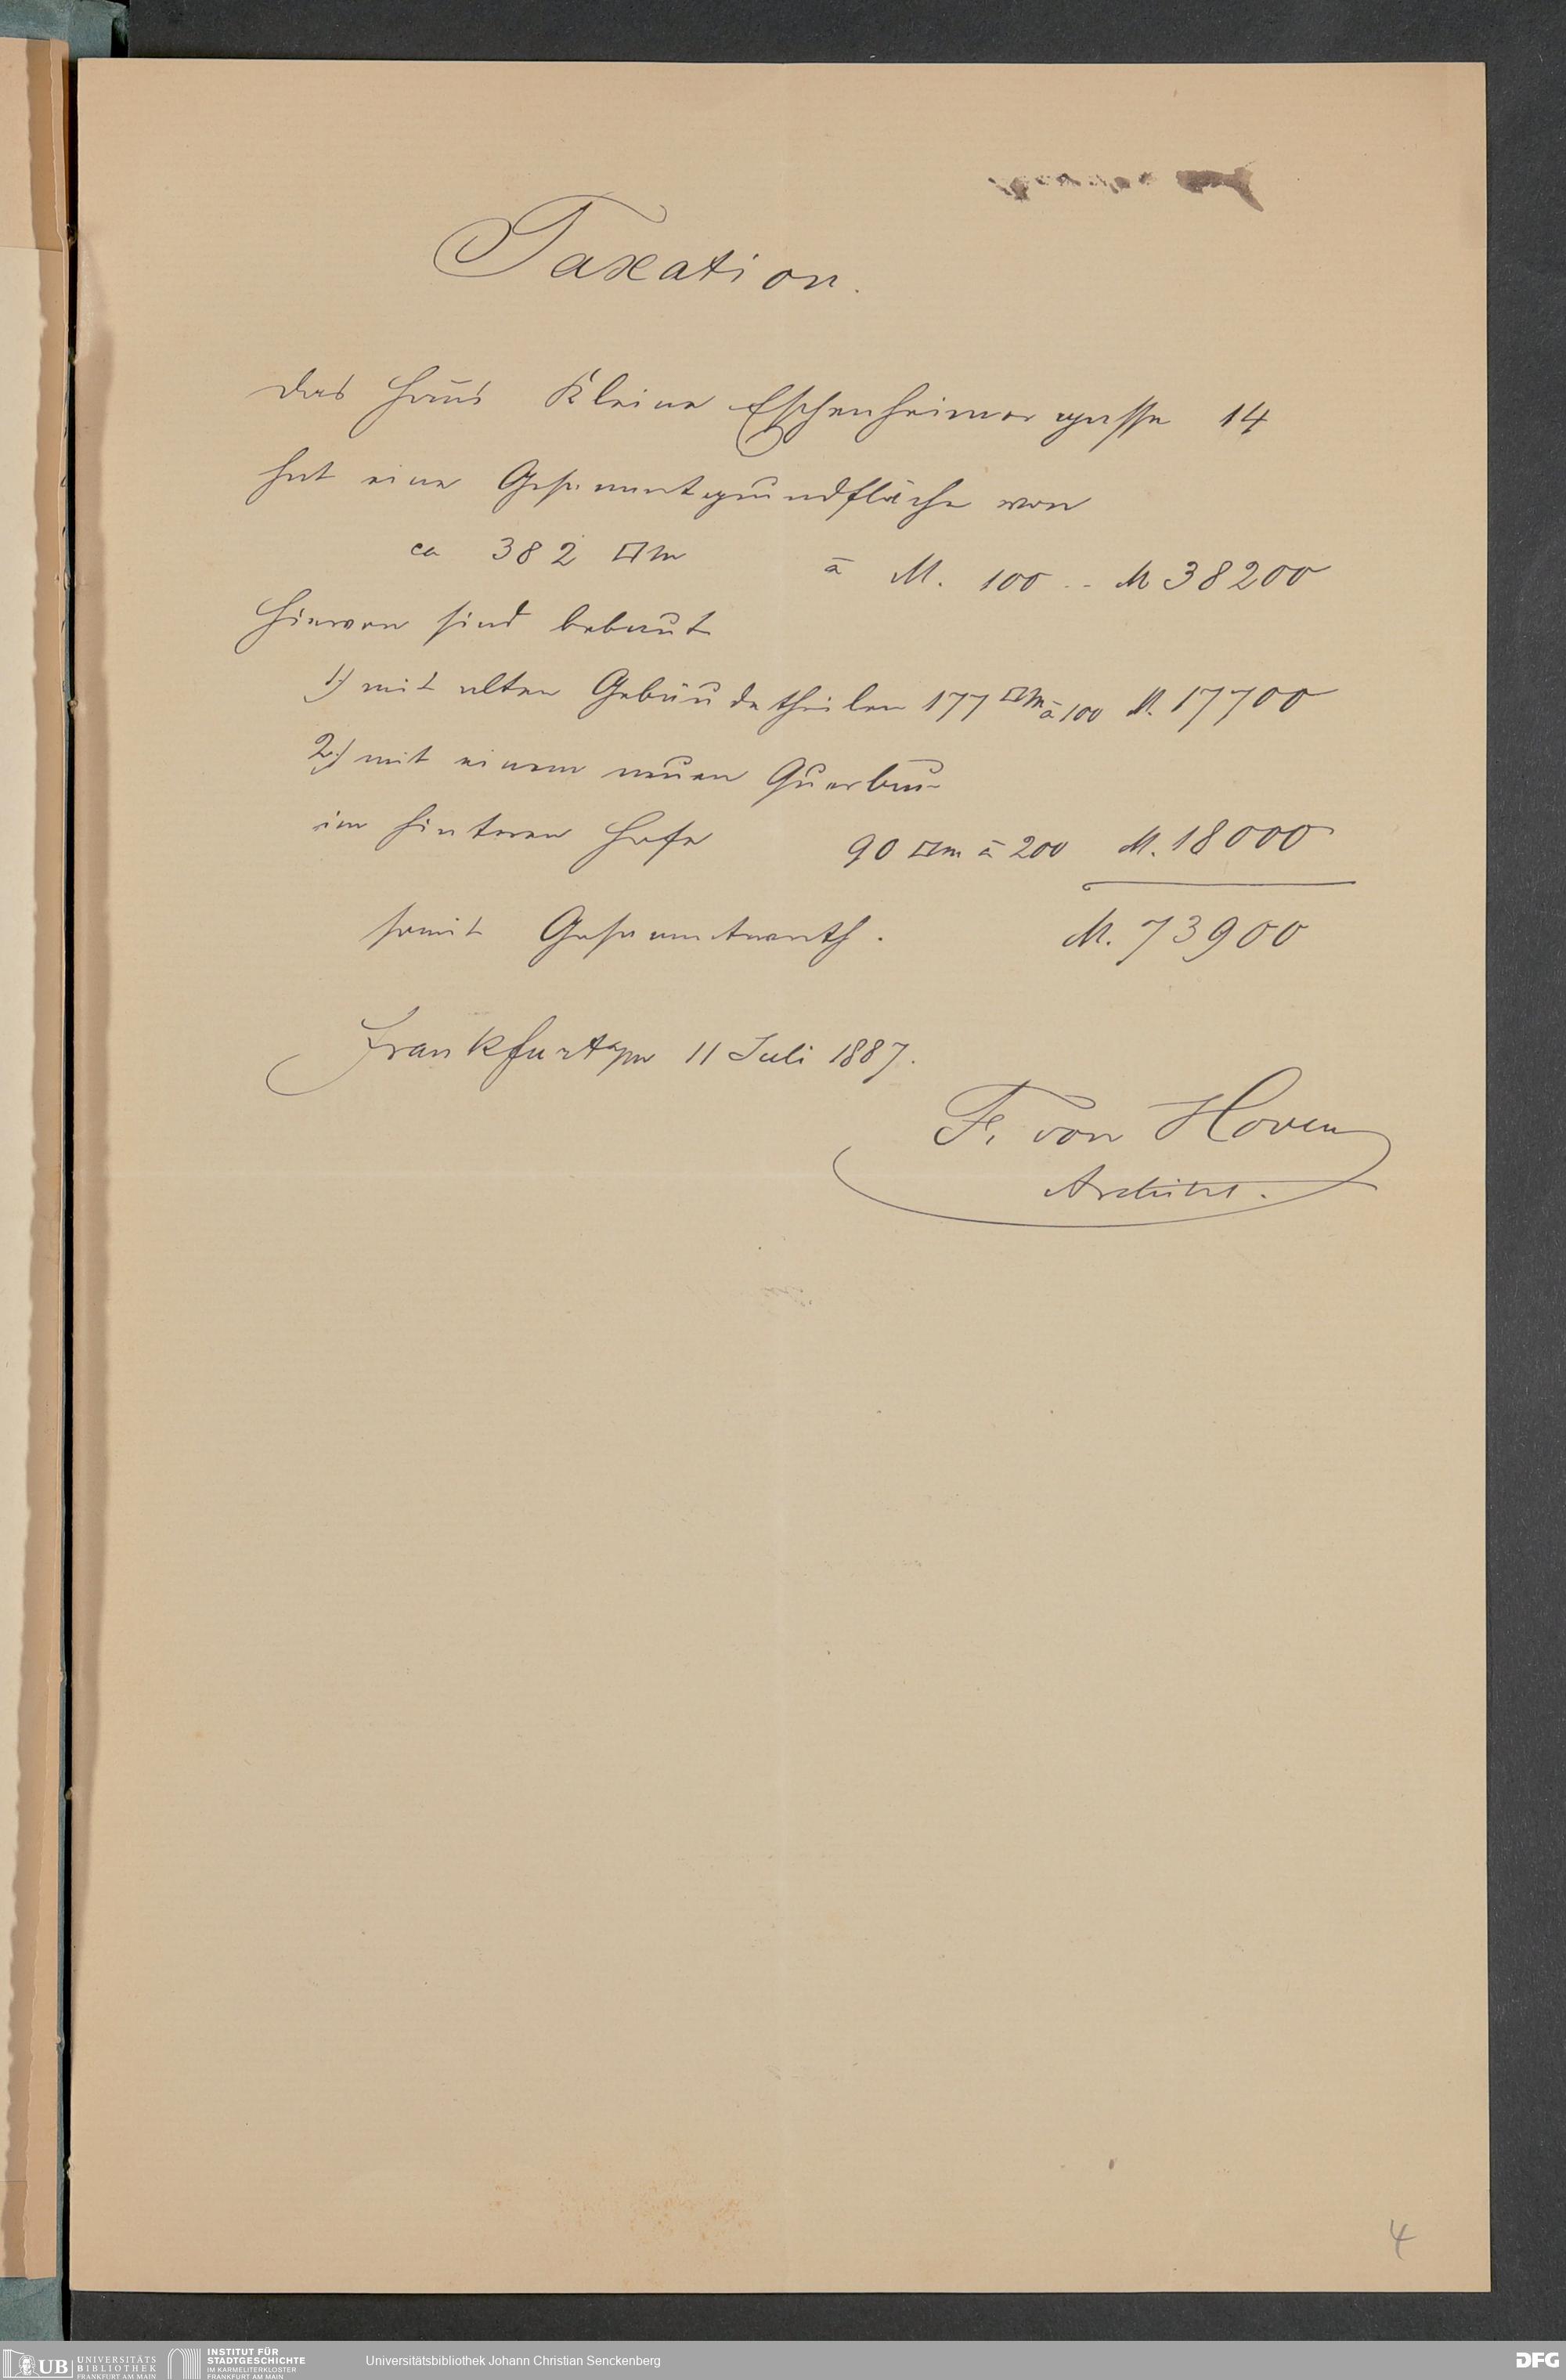 Taxation.
Das Haus Kleine Eschenheimergasse 14
hat eine Gesammtgrundfläche von
ca 382 □m à M. 100 .. M 38200
Hiervon sind bebaut
1.) mit alten Gebäudetheilen 177 □m à 100 M. 17700
2.) mit einem neuen Querbau
im hinteren Hofe 90 □m à 200 M. 18000
somit Gesammtwerth. M. 73900
Frankfurt a/m 11 Juli 1887.
F. von Hoven
Architect.
4
UB UNIVERSITÄTS
BIBLIOTHEK
FRANKFURT AM MAIN
INSTITUT FÜR
STADTGESCHICHTE
IM KARMELITERKLOSTER
FRANKFURT AM MAIN
Universitätsbibliothek Johann Christian Senckenberg
DFG